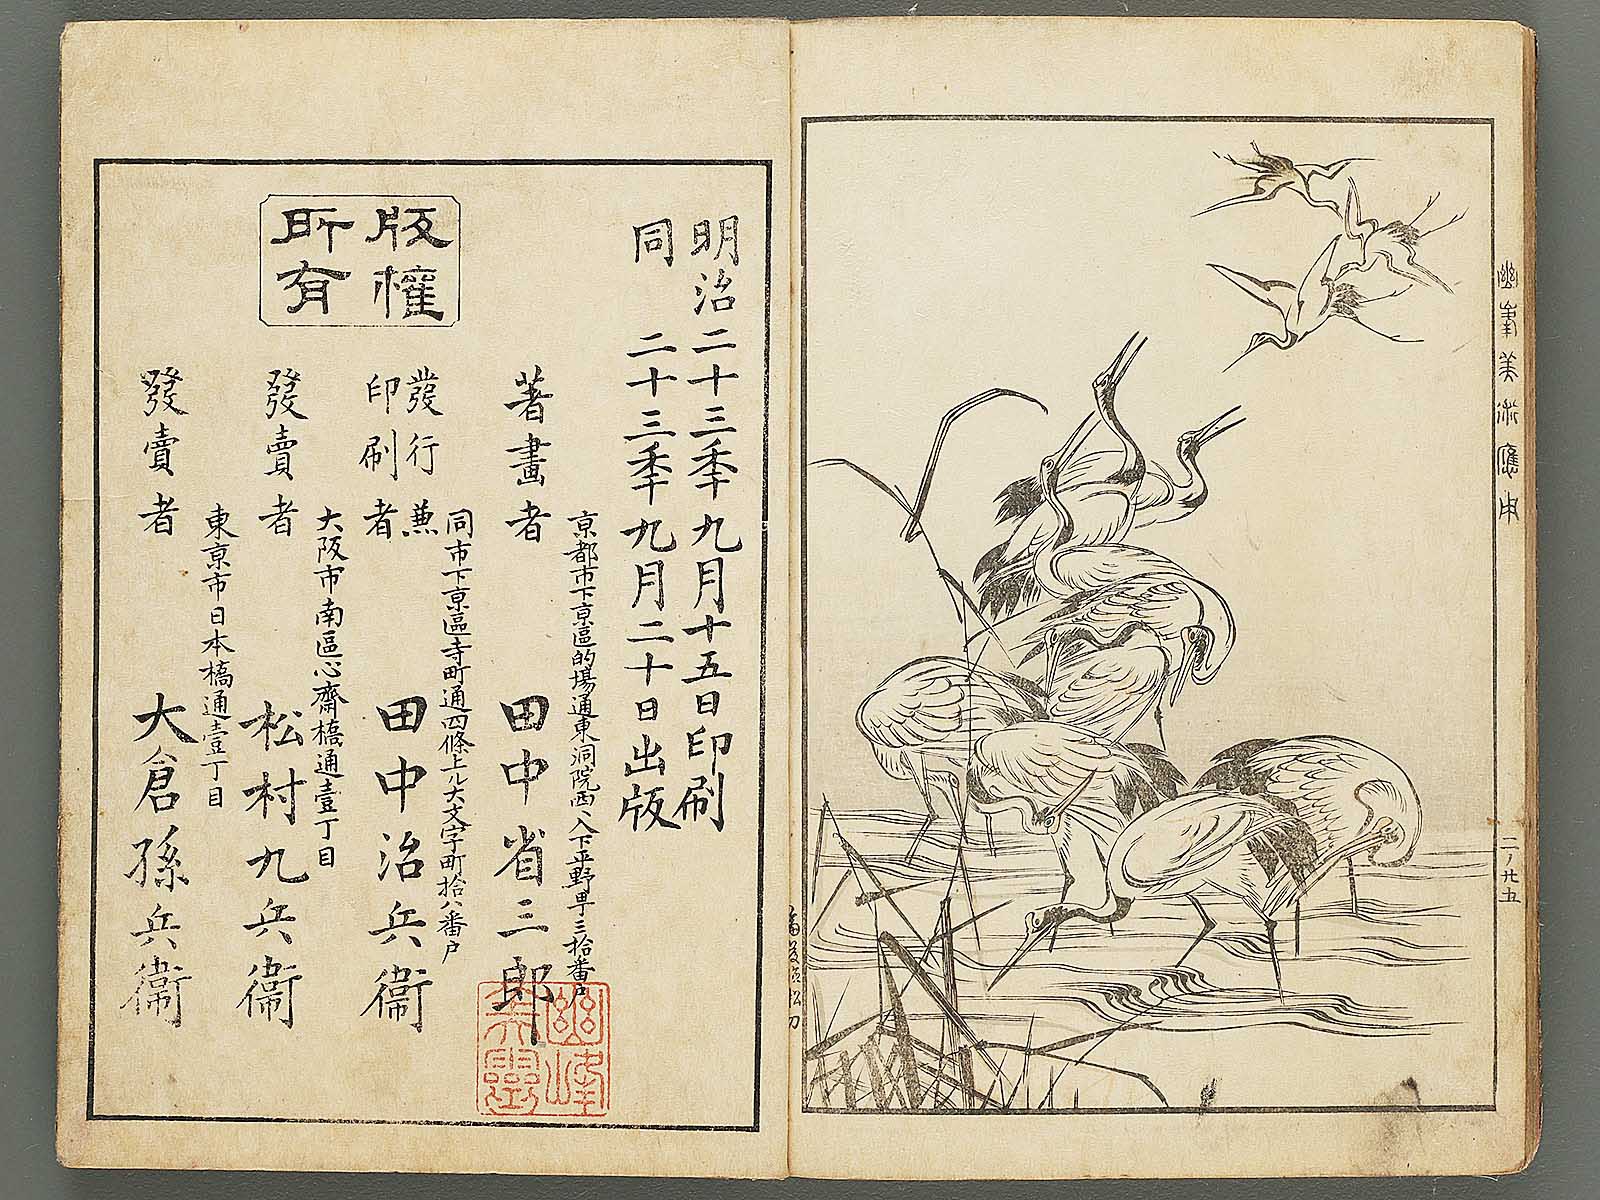 幽峯美術應用
二ノ廿五
版權
所有
明治二十三季九月十五日印刷
同 二十三季九月二十日出版
京都市下京區的場通東洞院西ヘ入下平野甼三拾番戸
著畫者 田中省三郎
同市下京區寺町通四條上ル大文字町拾八番戸
發行兼
印刷者 田中治兵衞
大阪市南區心齋橋通壹丁目
發賣者 松村九兵衞
東京市日本橋通壹丁目
發賣者 大倉孫兵衞